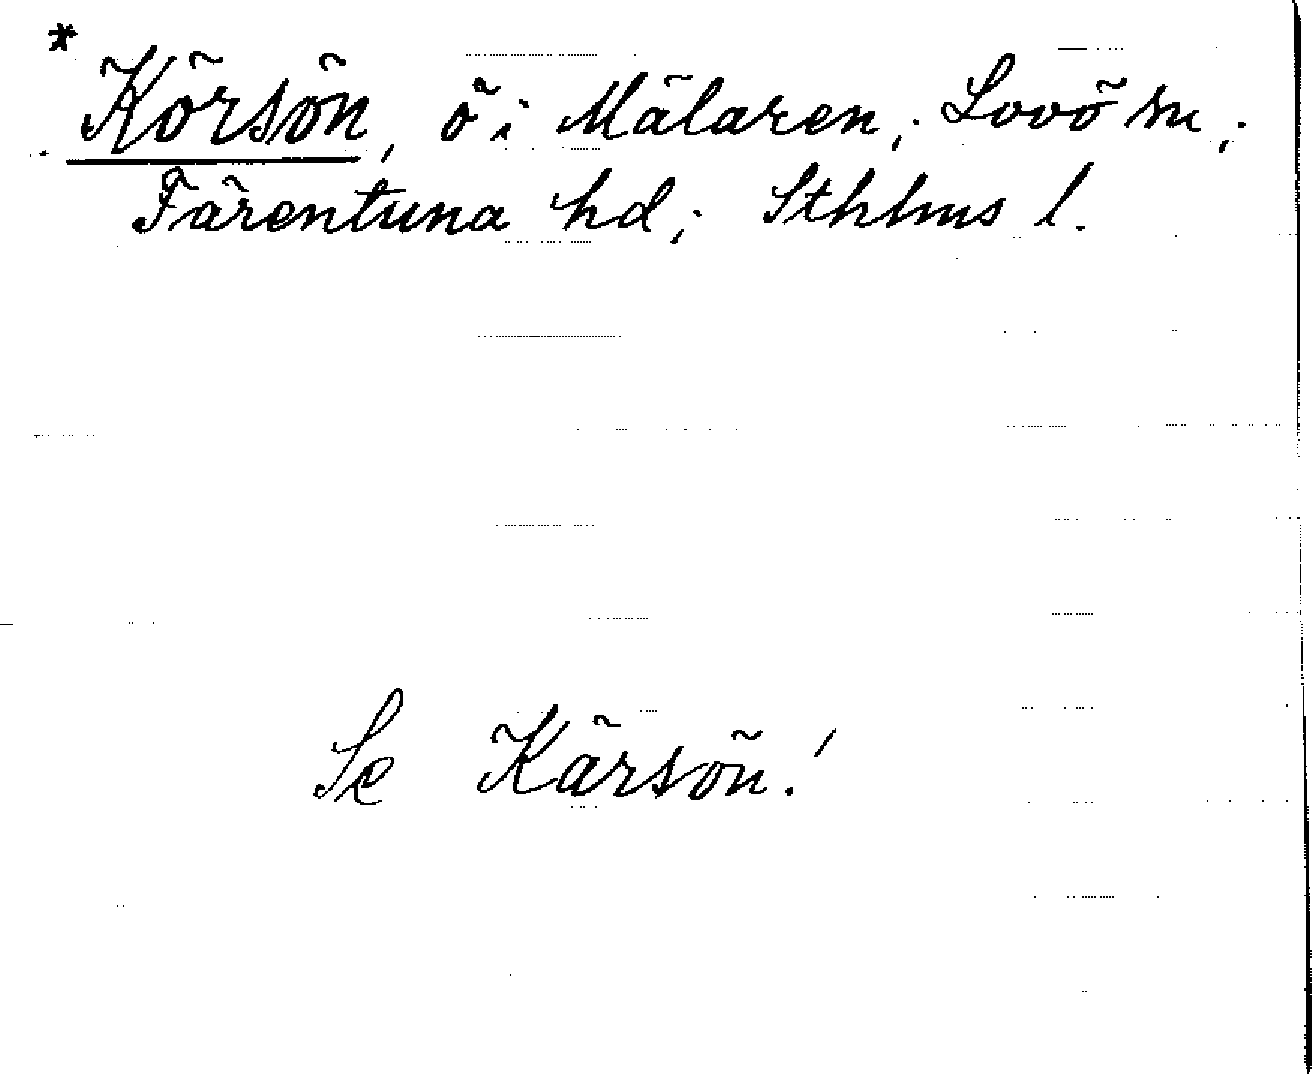 * Körsön, ö i Mälaren; Lovö sn;
Färentuna hd; Sthlms l.
Se Kärsön!